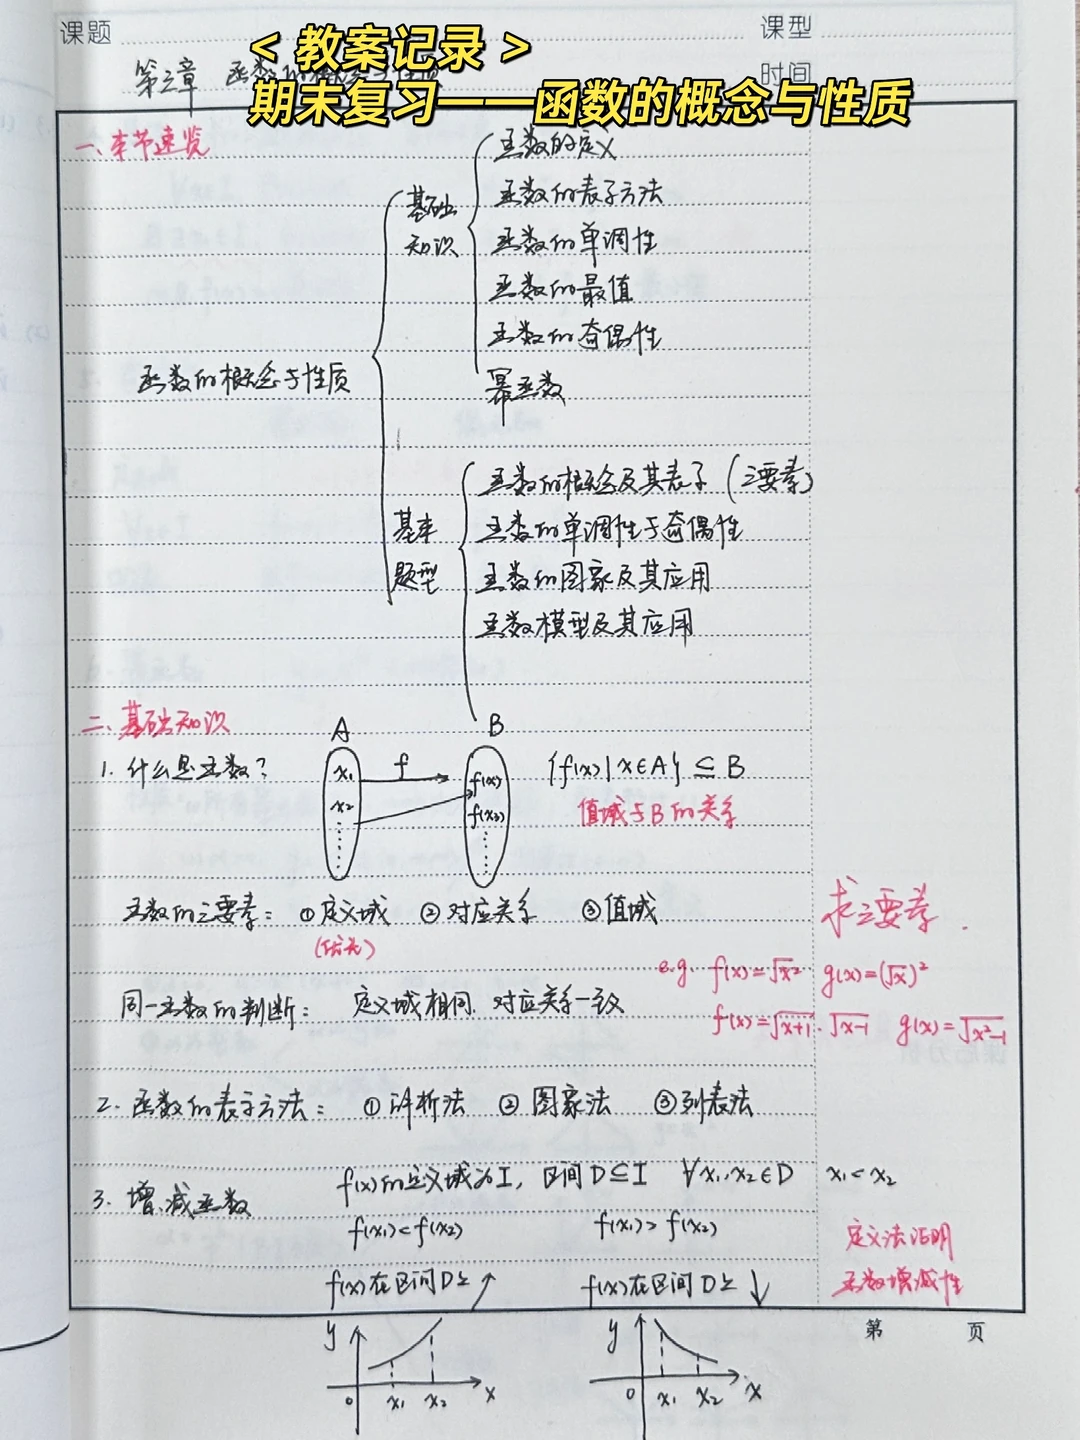 课题
课型
<教案记录>
时间
第三章 函数的概念与性质
期末复习——函数的概念与性质
一、本节速览
函数的概念与性质
基础知识
函数的定义
函数的表示方法
函数的单调性
函数的最值
函数的奇偶性
幂函数
基本题型
函数的概念及其表示（三要素）
函数的单调性与奇偶性
函数的图象及其应用
函数模型及其应用
二、基础知识
1. 什么是函数？
A f B
x₁ f(x)
x₂ f(x₂)
{f(x)|x∈A} ⊆ B
值域与B的关系
函数的三要素： ①定义域 ②对应关系 ③值域
(优先)
求三要素.
e.g. f(x)=√x² g(x)=(√x)²
同一函数的判断： 定义域相同, 对应关系一致
f(x)=√x+1·√x-1 g(x)=√x²-1
2. 函数的表示方法： ①解析法 ②图象法 ③列表法
3. 增.减函数
f(x)的定义域为I, 区间D⊆I ∀x₁,x₂∈D x₁<x₂
f(x₁)<f(x₂) f(x₁)>f(x₂)
f(x)在区间D上↗ f(x)在区间D上↓
定义法证明
函数增减性
第 页
y 0 x₁ x₂ x
y 0 x₁ x₂ x